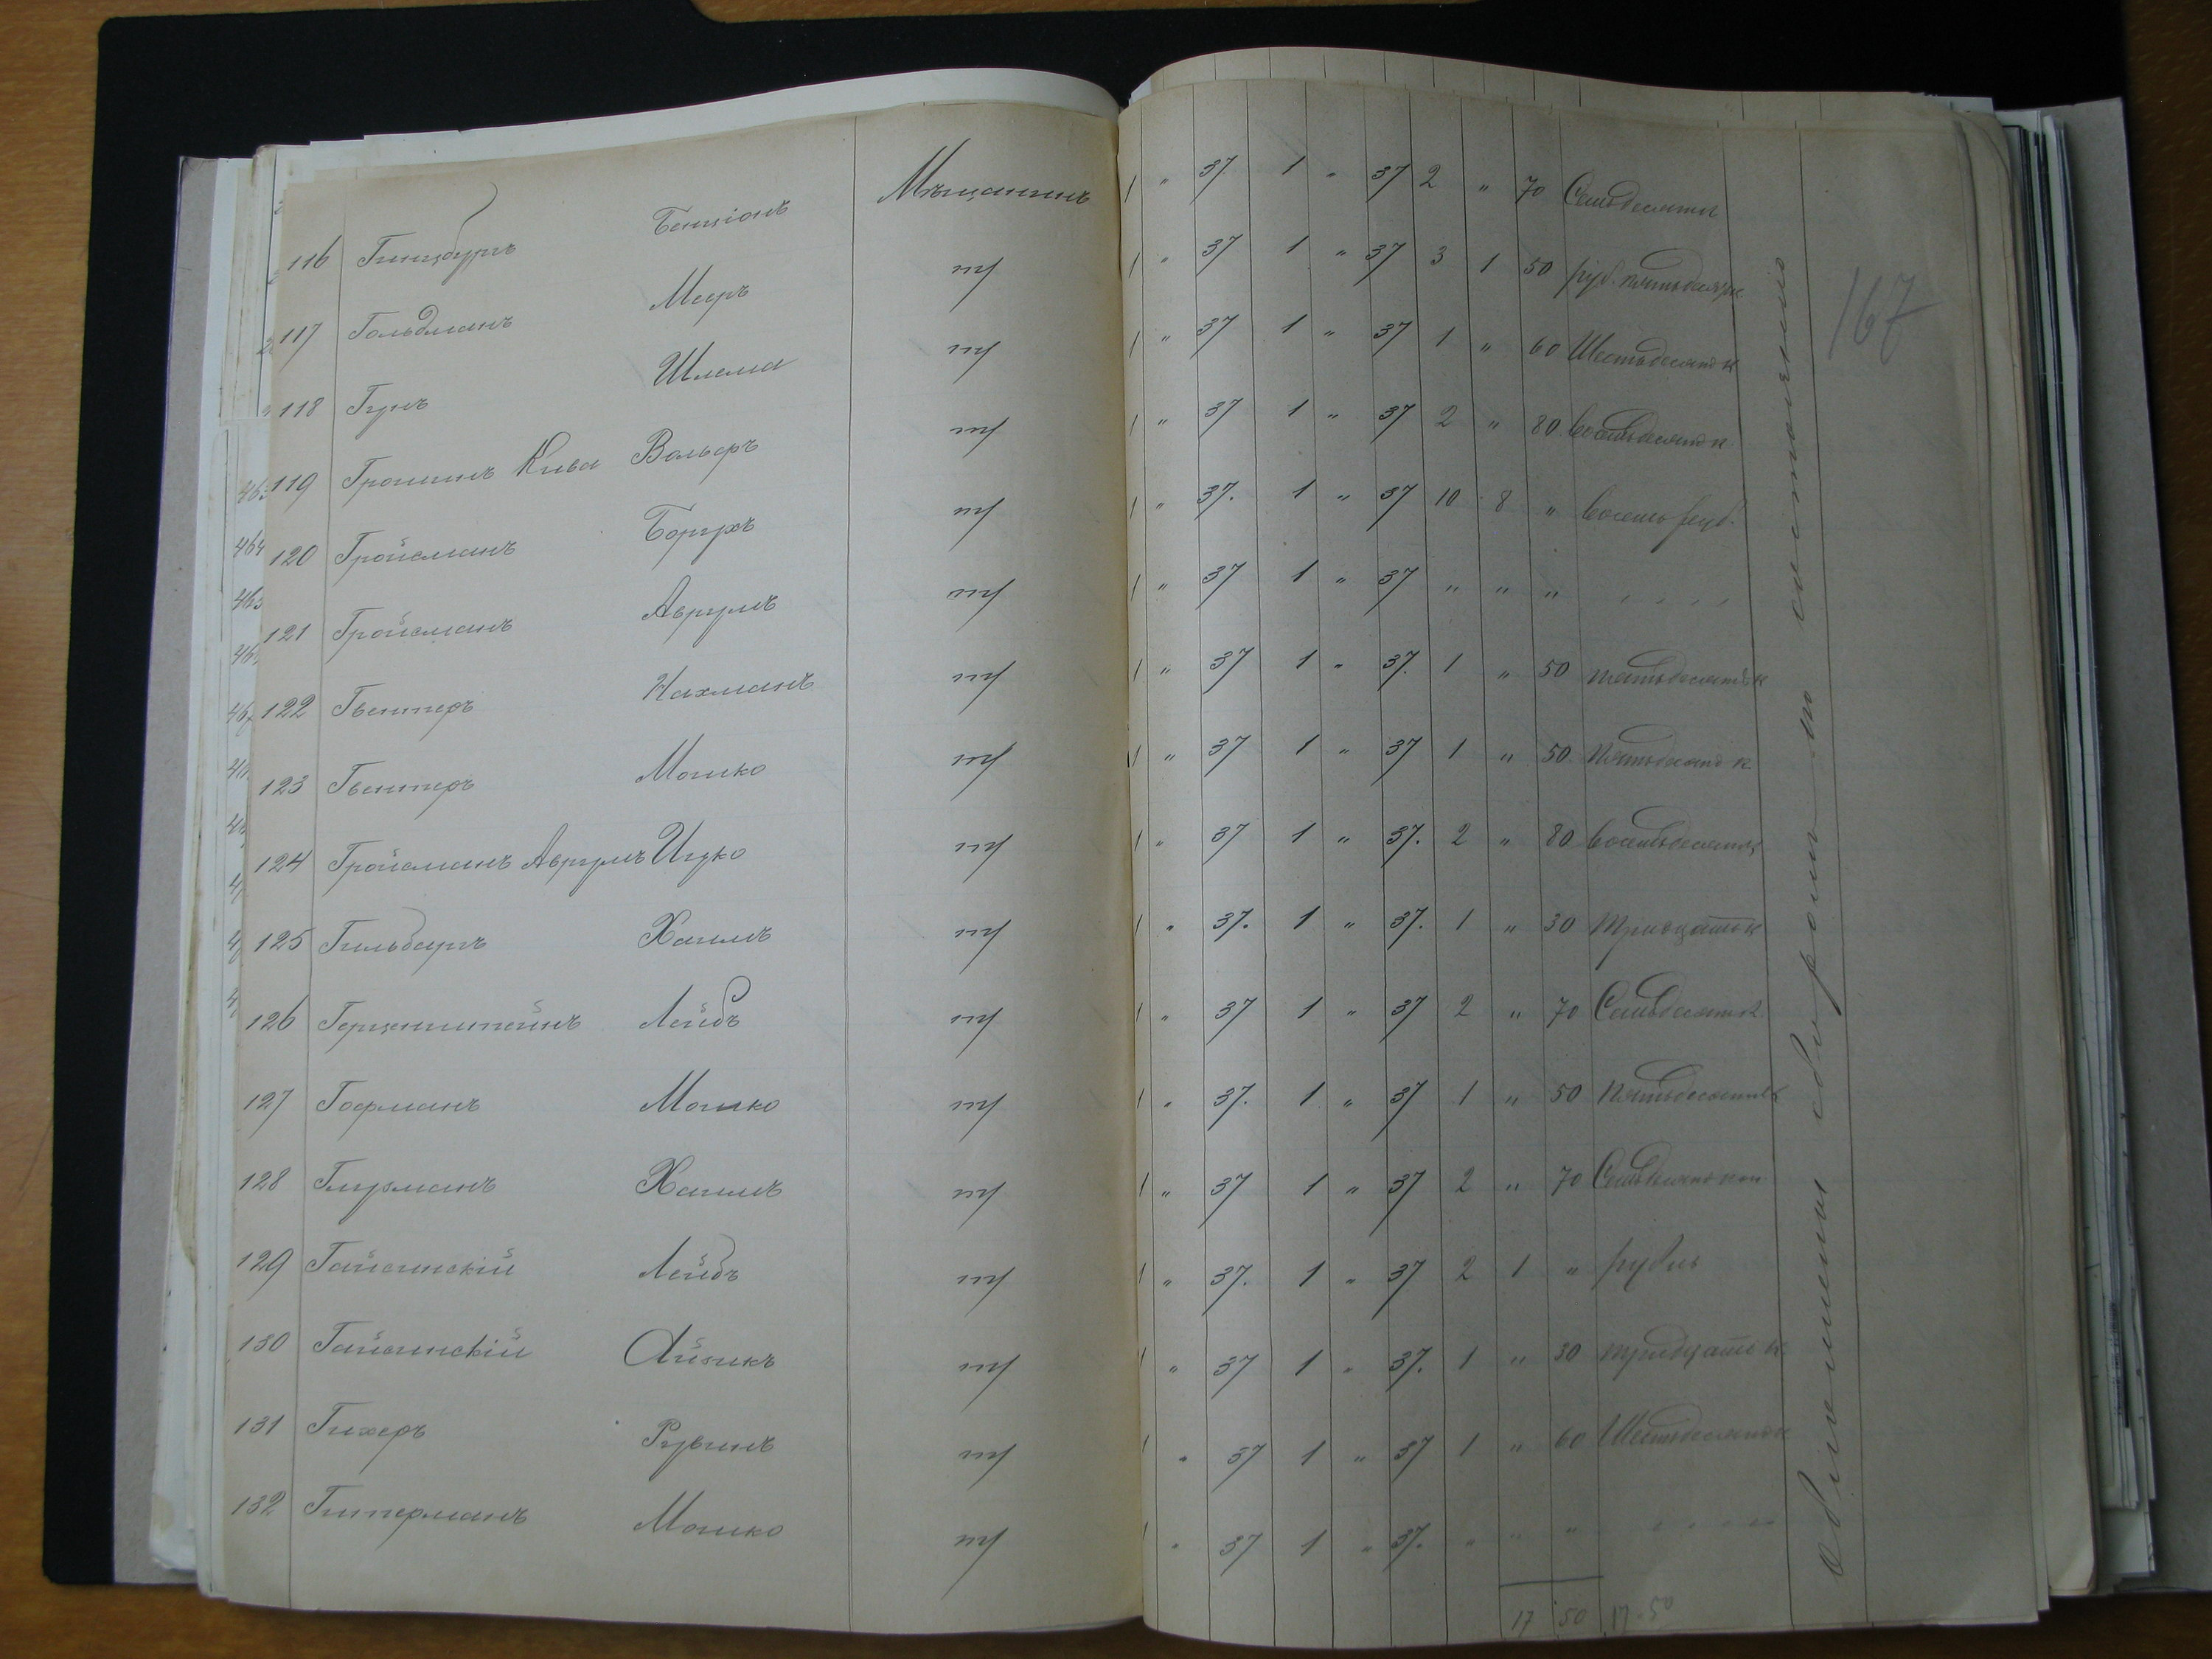 116 Гинцбургъ Бенціонъ Мѣщанинъ 1 " 37 1 " 37 2 " 70 Семьдесятк
117 Гольдманъ Мееръ т/ 1 " 37 1 " 37 3 1 50 руб. пятьдесятк
118 Гунъ Шлема т/ 1 " 37 1 " 37 1 " 60 Шестьдесят к
119 Громинъ Кива Вольфъ т/ 1 " 37 1 " 37 2 " 80 восемьдесят к
120 Гройсманъ Борухъ т/ 1 " 37. 1 " 37 10 8 " восемь руб.
121 Гройсманъ Аврумъ т/ 1 " 37 1 " 37 " " " " " " "
122 Гвентеръ Нахманъ т/ 1 " 37 1 " 37. 1 " 50 пятьдесят к
123 Гвентеръ Мошко т/ 1 " 37 1 " 37 1 " 50 Пятьдесят к
124 Гройсманъ Аврумъ Ицко т/ 1 " 37 1 " 37. 2 " 80 восемьдесятк
125 Гильбургъ Хаимъ т/ 1 " 37. 1 " 37. 1 " 30 тридцать к
126 Герценштейнъ Лейбъ т/ 1 " 37 1 " 37 2 " 70 Семьдесят к
127 Гофманъ Мошко т/ 1 " 37. 1 " 37 1 " 50 Пятьдесятк
128 Глузманъ Хаимъ т/ 1 " 37 1 " 37 2 " 70 Семьдесят коп
129 Гайсинскій Лейбъ т/ 1 " 37. 1 " 37 2 1 " рубль
130 Гайсинскій Айзикъ т/ " 37 1 " 37. 1 " 30 тридцать к
131 Гихеръ Рувинъ т/ 1 " 37 1 " 37 1 " 60 Шестьдесят к
132 Гитерманъ Мошко т/ 1 " 37 1 " 37. " " " " " " "
17 50 17-50
167